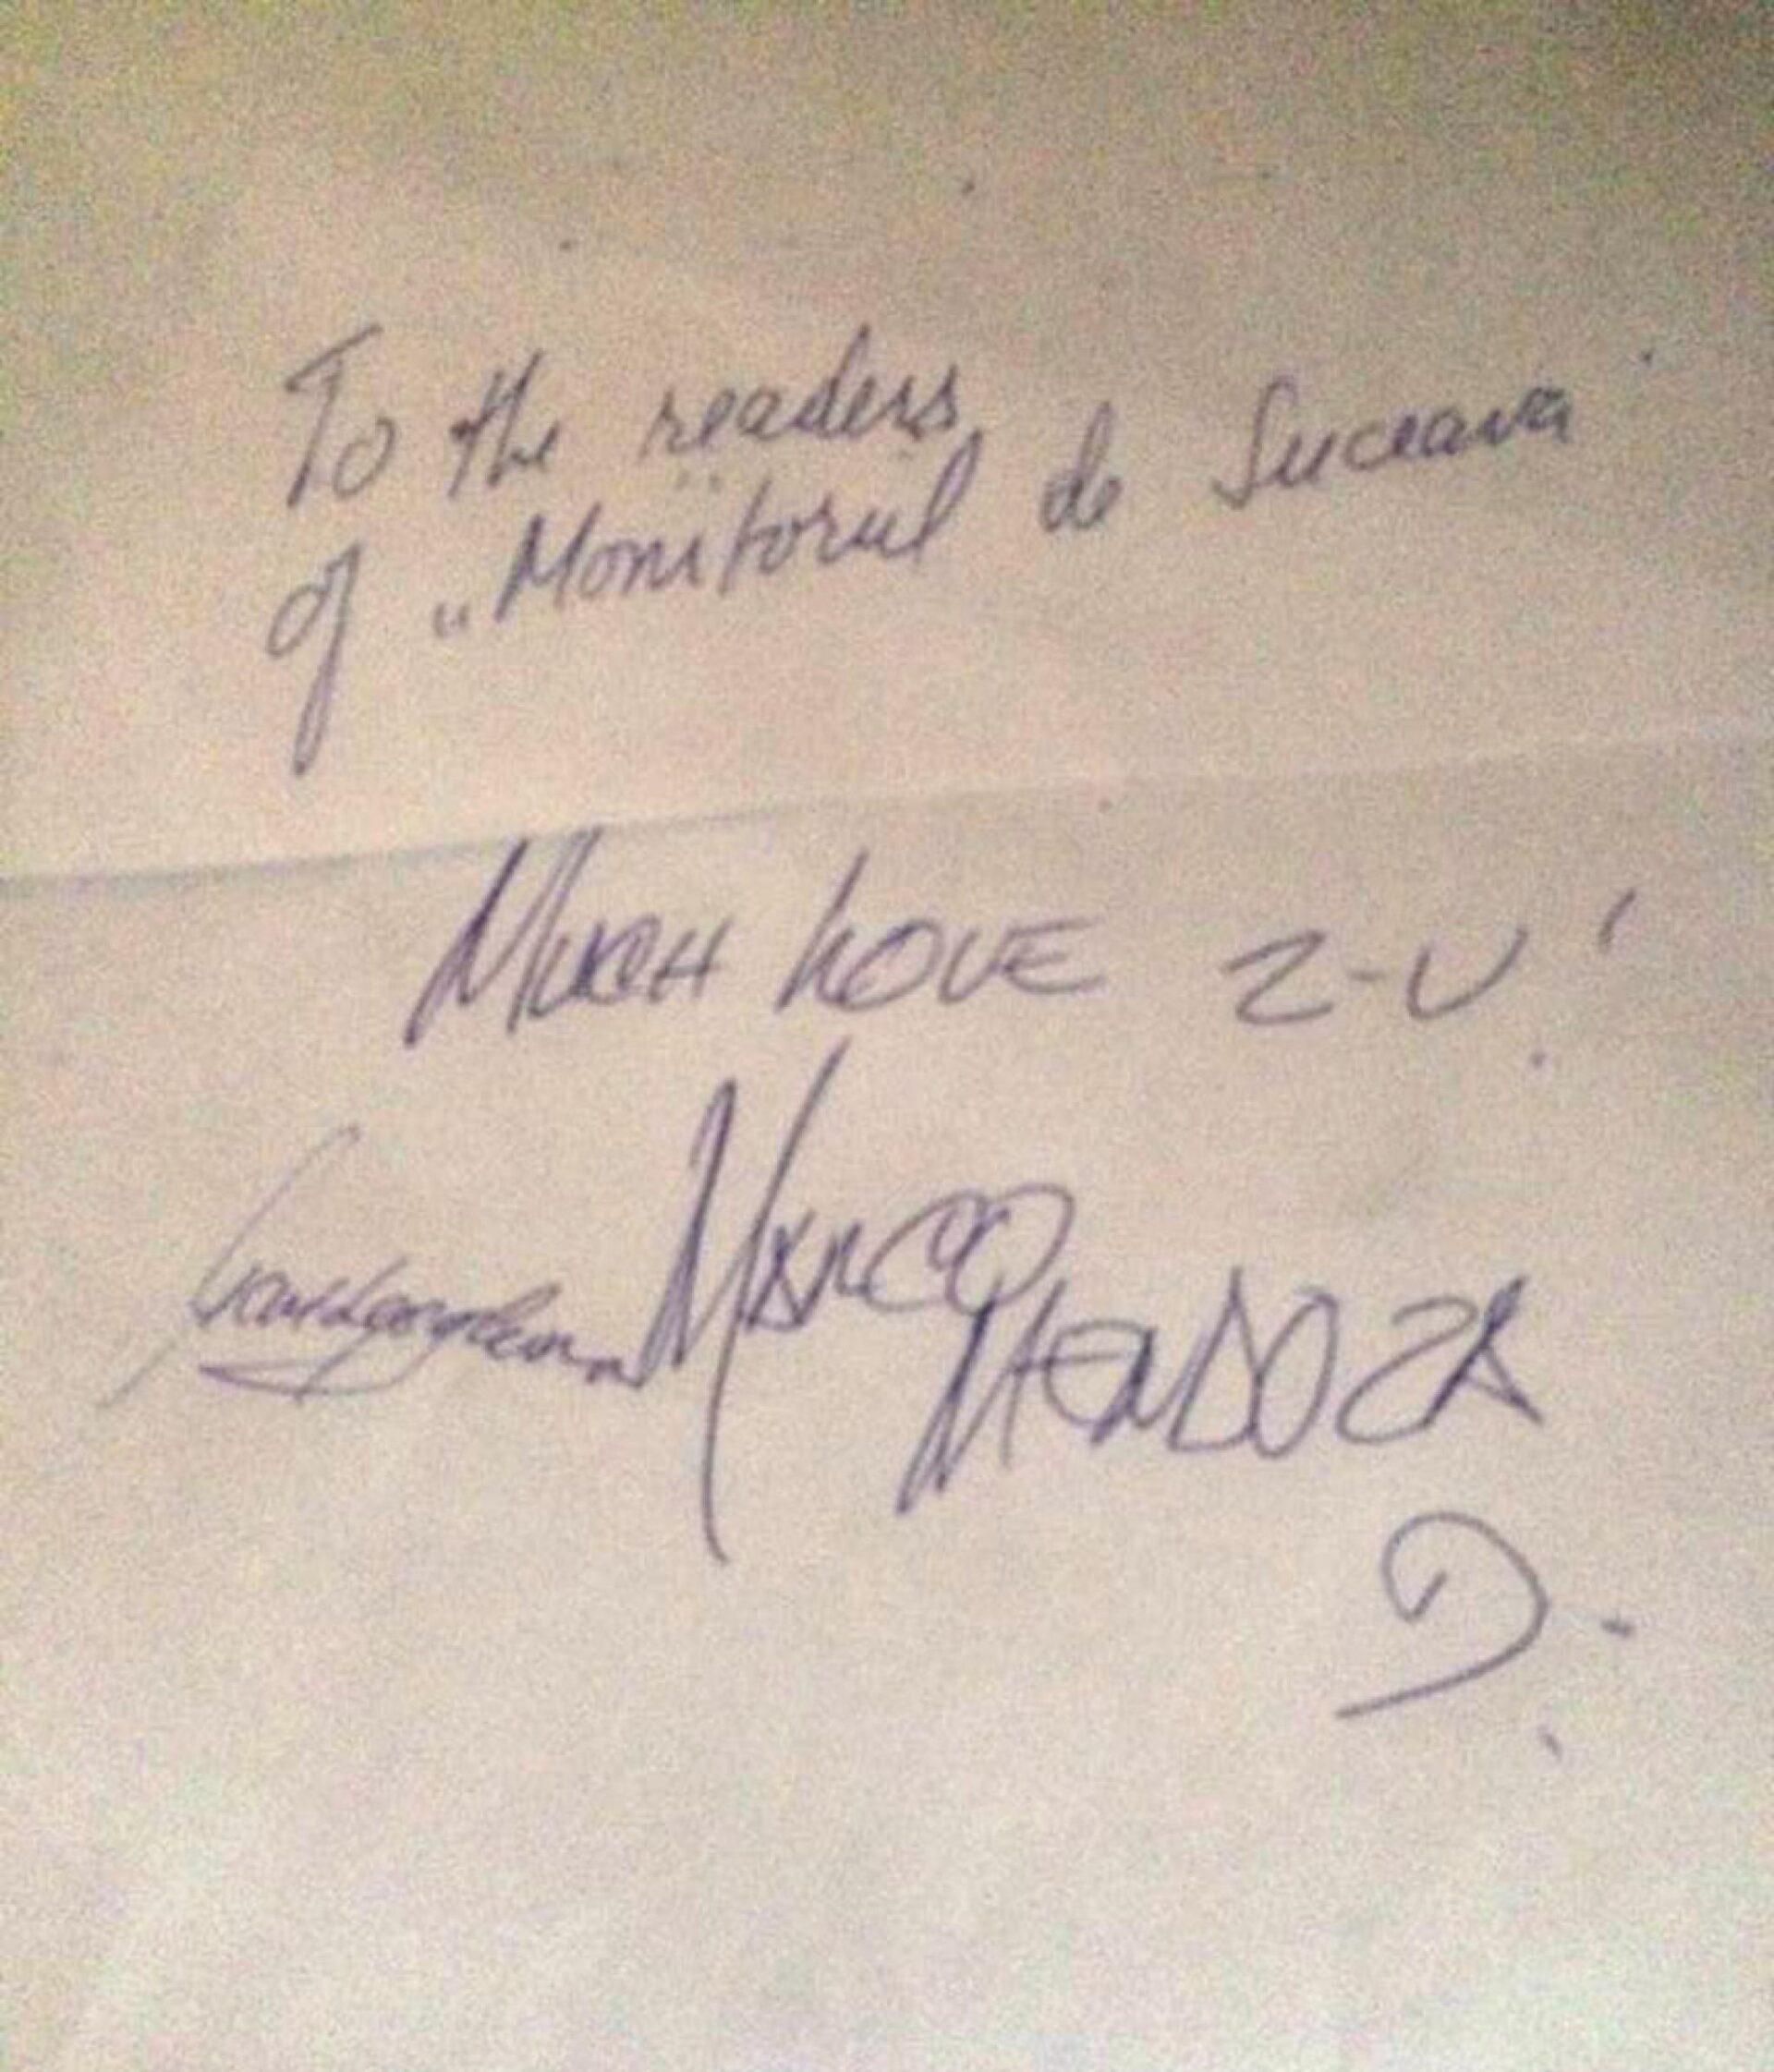 To the readers
of „Monitorul de Suceava
MUCH LOVE 2-U!
MARCO
MENDOZA
D.